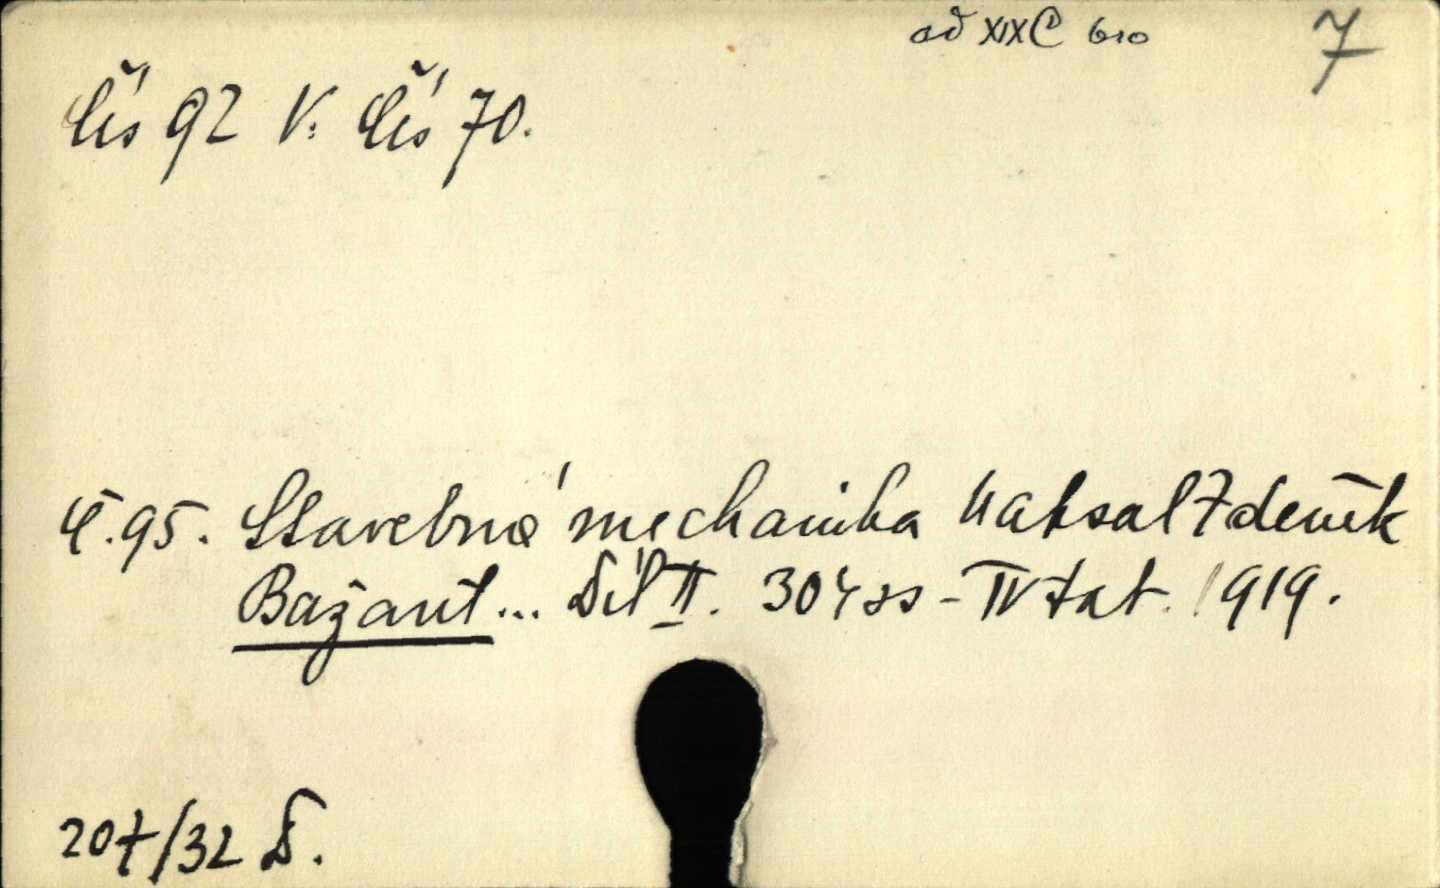 ad XIX C 610
7
Čís 92 V: Čís 70.
Č. 95. Stavebná mechanika Napsal Zdeněk
Bažant... Díl II. 304 ss - IV tab. 1919.
207/32 D.